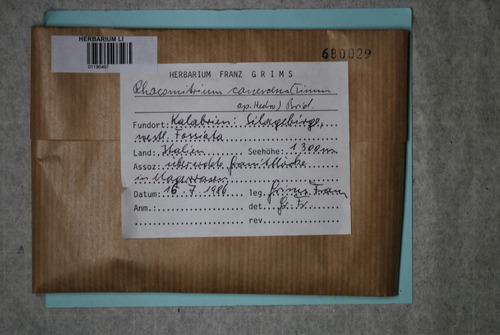 HERBARIUM LI
680029
HERBARIUM FRANZ GRIMS
Rhacomitrium canescens
ap. Hedw.) Brid.
Fundort: Kalabrien: Silagebirge,
westl.
Land: Italien Seehöhe: 1300m
Assoz: über Granitblöcke
in Magerrasen
Datum: 16.7.1986 leg. Grims Franz
Anm.: det. Gr. Fr.
rev.